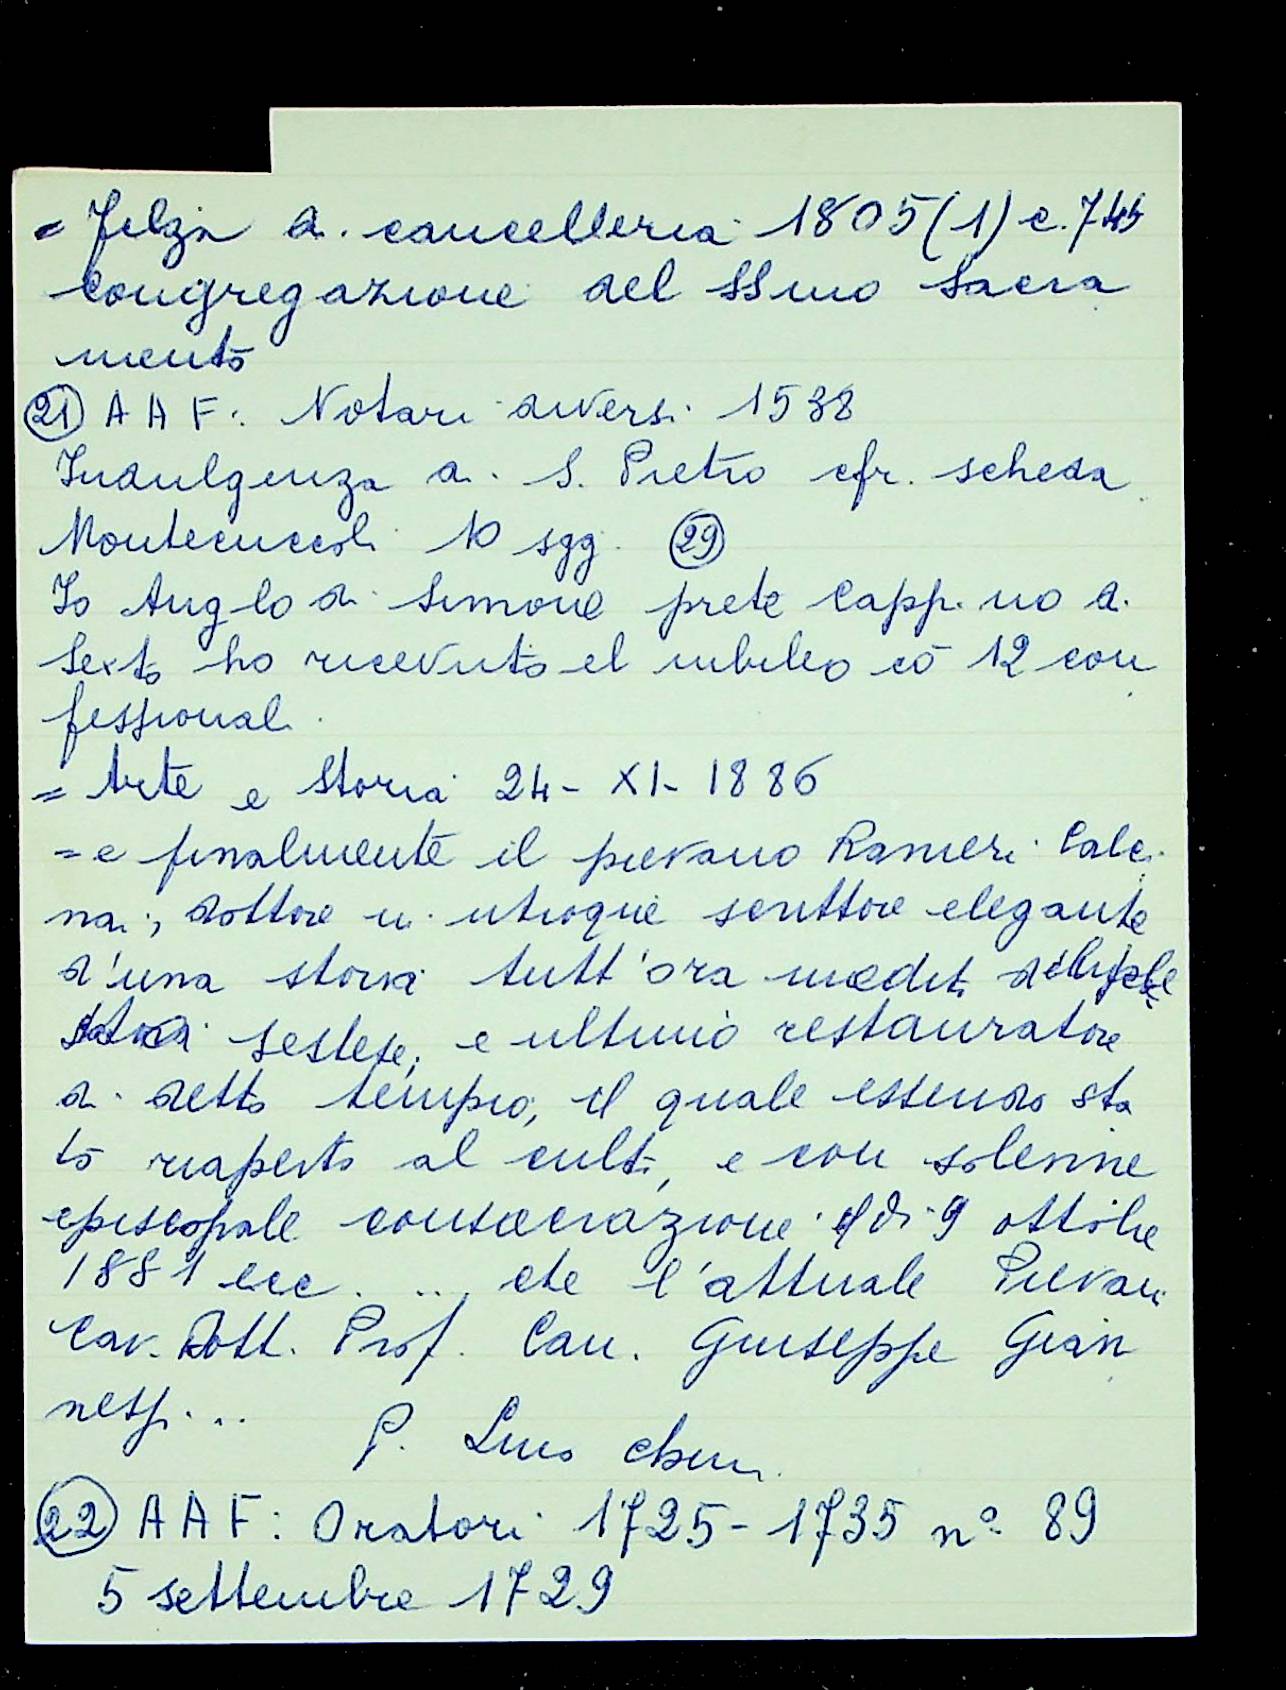 = Filza di cancelleria 1805(1) c. 745
Congregazione del SSmo Sacra
mento
(21) A A F: Notari diversi 1538
Indulgenza di S. Pietro cfr. scheda
Montecuccoli 10 sgg. (29)
Io Anglo di Simone prete Capp. no a
Sexto ho ricevuto el iubileo cō 12 con
fessionali
= Arte e Storia 24 - XI - 1886
= e finalmente il pievano Ranieri Calci
nai, dottore in utroque scrittore elegante
d'una storia tutt'ora inedita
sestese, e ultimo restauratore
di detto tempio, il quale essendo sta
to riaperto al culto, e con solenne
episcopale consacrazione il dì 9 ottobre
1881 ecc. ... che l'attuale Pievan
Cav. Dott. Prof. Can. Giuseppe Gian
nesp...
P. Lino Chini
(22) A A F: Oratori 1725 - 1735 nº 89
5 settembre 1729